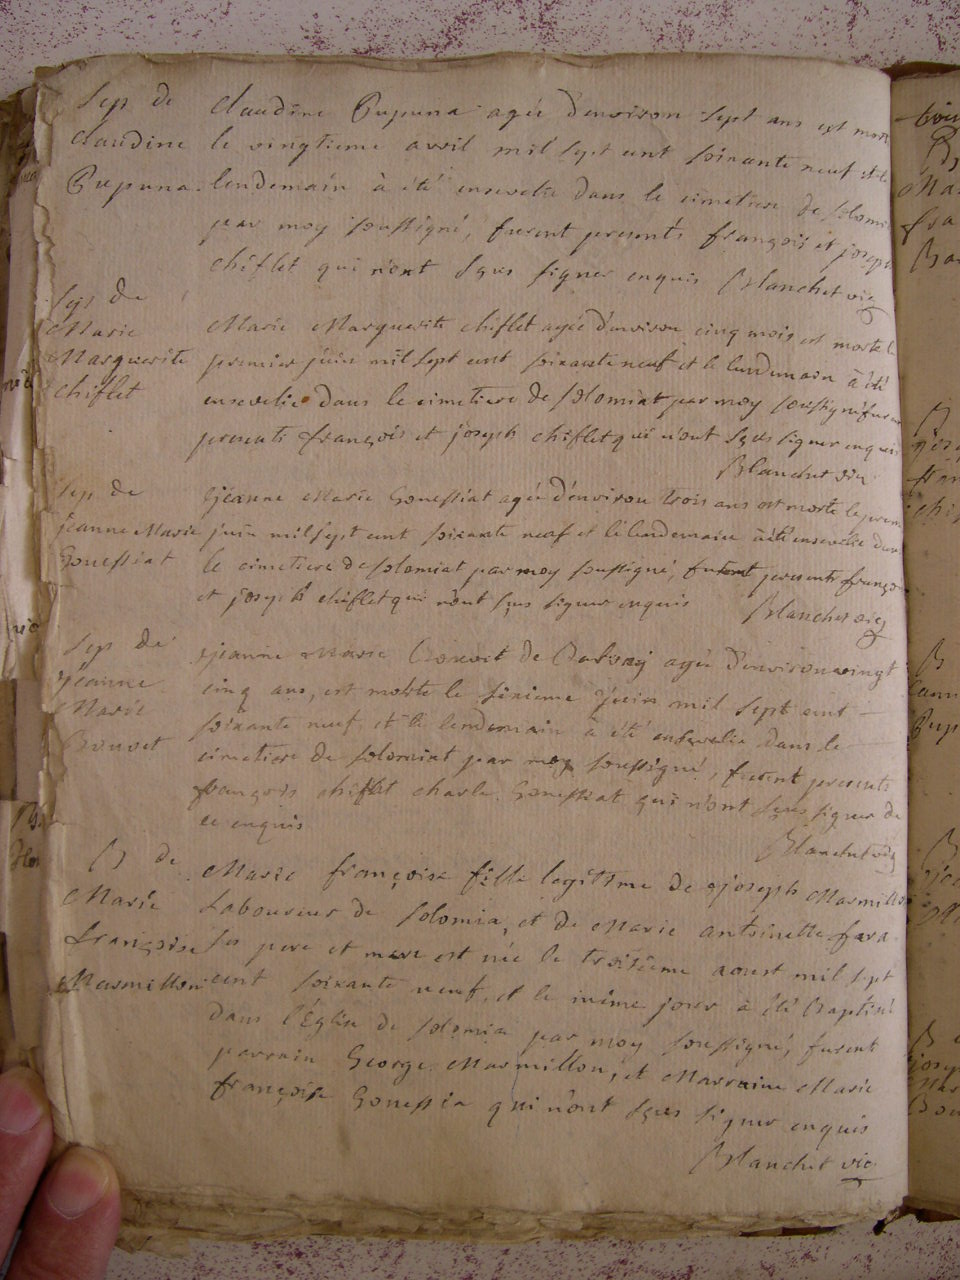 Sep de
Claudine
Pupuna.
Claudine Pupuna agée d'environ sept ans est morte
le vingtieme avril mil sept cent soixante neuf et le
lendemain à été ensevelie dans le cimetiere de solomia
par moy soussigné, furent presents françois et joseph
chiflet qui n'ont sçus signer enquis Blanchet vic
Sep de
Marie
Marguerite
chiflet
Marie Marguerite chiflet agée d'environ cinq mois est morte le
premier juin mil sept cent soixante neuf et le lendemain à été
ensevelie dans le cimetiere de solomiat par moy soussigné furent
presents françois et joseph chiflet qui n'ont sçus signer enquis
Blanchet vic
Sep de
jeanne Marie
Gonessiat
jeanne Marie Gonessiat agée d'environ trois ans est morte le
juin mil sept cent soixante neuf et le lendemain à été ensevelie dans
le cimetiere de solomiat par moy soussigné, furent presents françois
et joseph chiflet qui n'ont sçus signer enquis Blanchet vic
Sep de
jeanne
Marie
Bouvet
jeanne Marie Bouvet de agée d'environ vingt
cinq ans, est morte le sixieme juin mil sept cent
soixante neuf, et le lendemain à été ensevelie dans le
cimetiere de solomiat par moy soussigné, furent presents
françois chiflet charle Gonessiat qui n'ont sçus signer de
ce enquis
Blanchet vic
B de
Marie
françoise
Marmillon
Marie françoise fille legitime de joseph Marmillon
Laboureur de solomia, et de Marie antoinette
ses pere et mere est née le troisieme aoust mil sept
cent soixante neuf, et le même jour à été Baptisé
dans l'Eglise de solomia par moy soussigné, furent
parrain George Marmillon, et Marraine Marie
françoise Gonessia qui n'ont sçus signer enquis
Blanchet vic